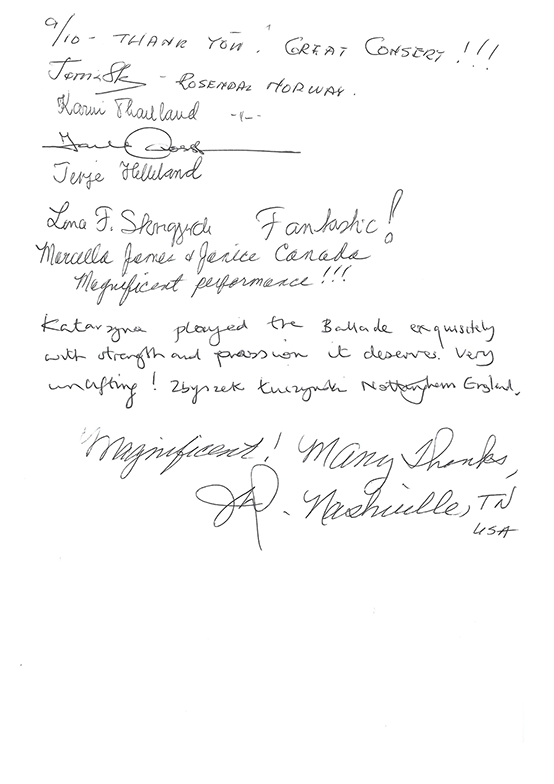 9/10 - THANK YOU! GREAT CONSERT!!!
- ROSENDAL NORWAY.
Karin Thailand -"-
Terje Helleland
Lena F. Fantastic!
Marcella James & Janice Canada
Magnificent performance!!!
Katarzyna played the Ballade exquisitely
with strength and passion it deserves. Very
uplifting! Zbyszek Nottingham England.
Magnificent! Many Thanks,
- Nashville, TN
USA